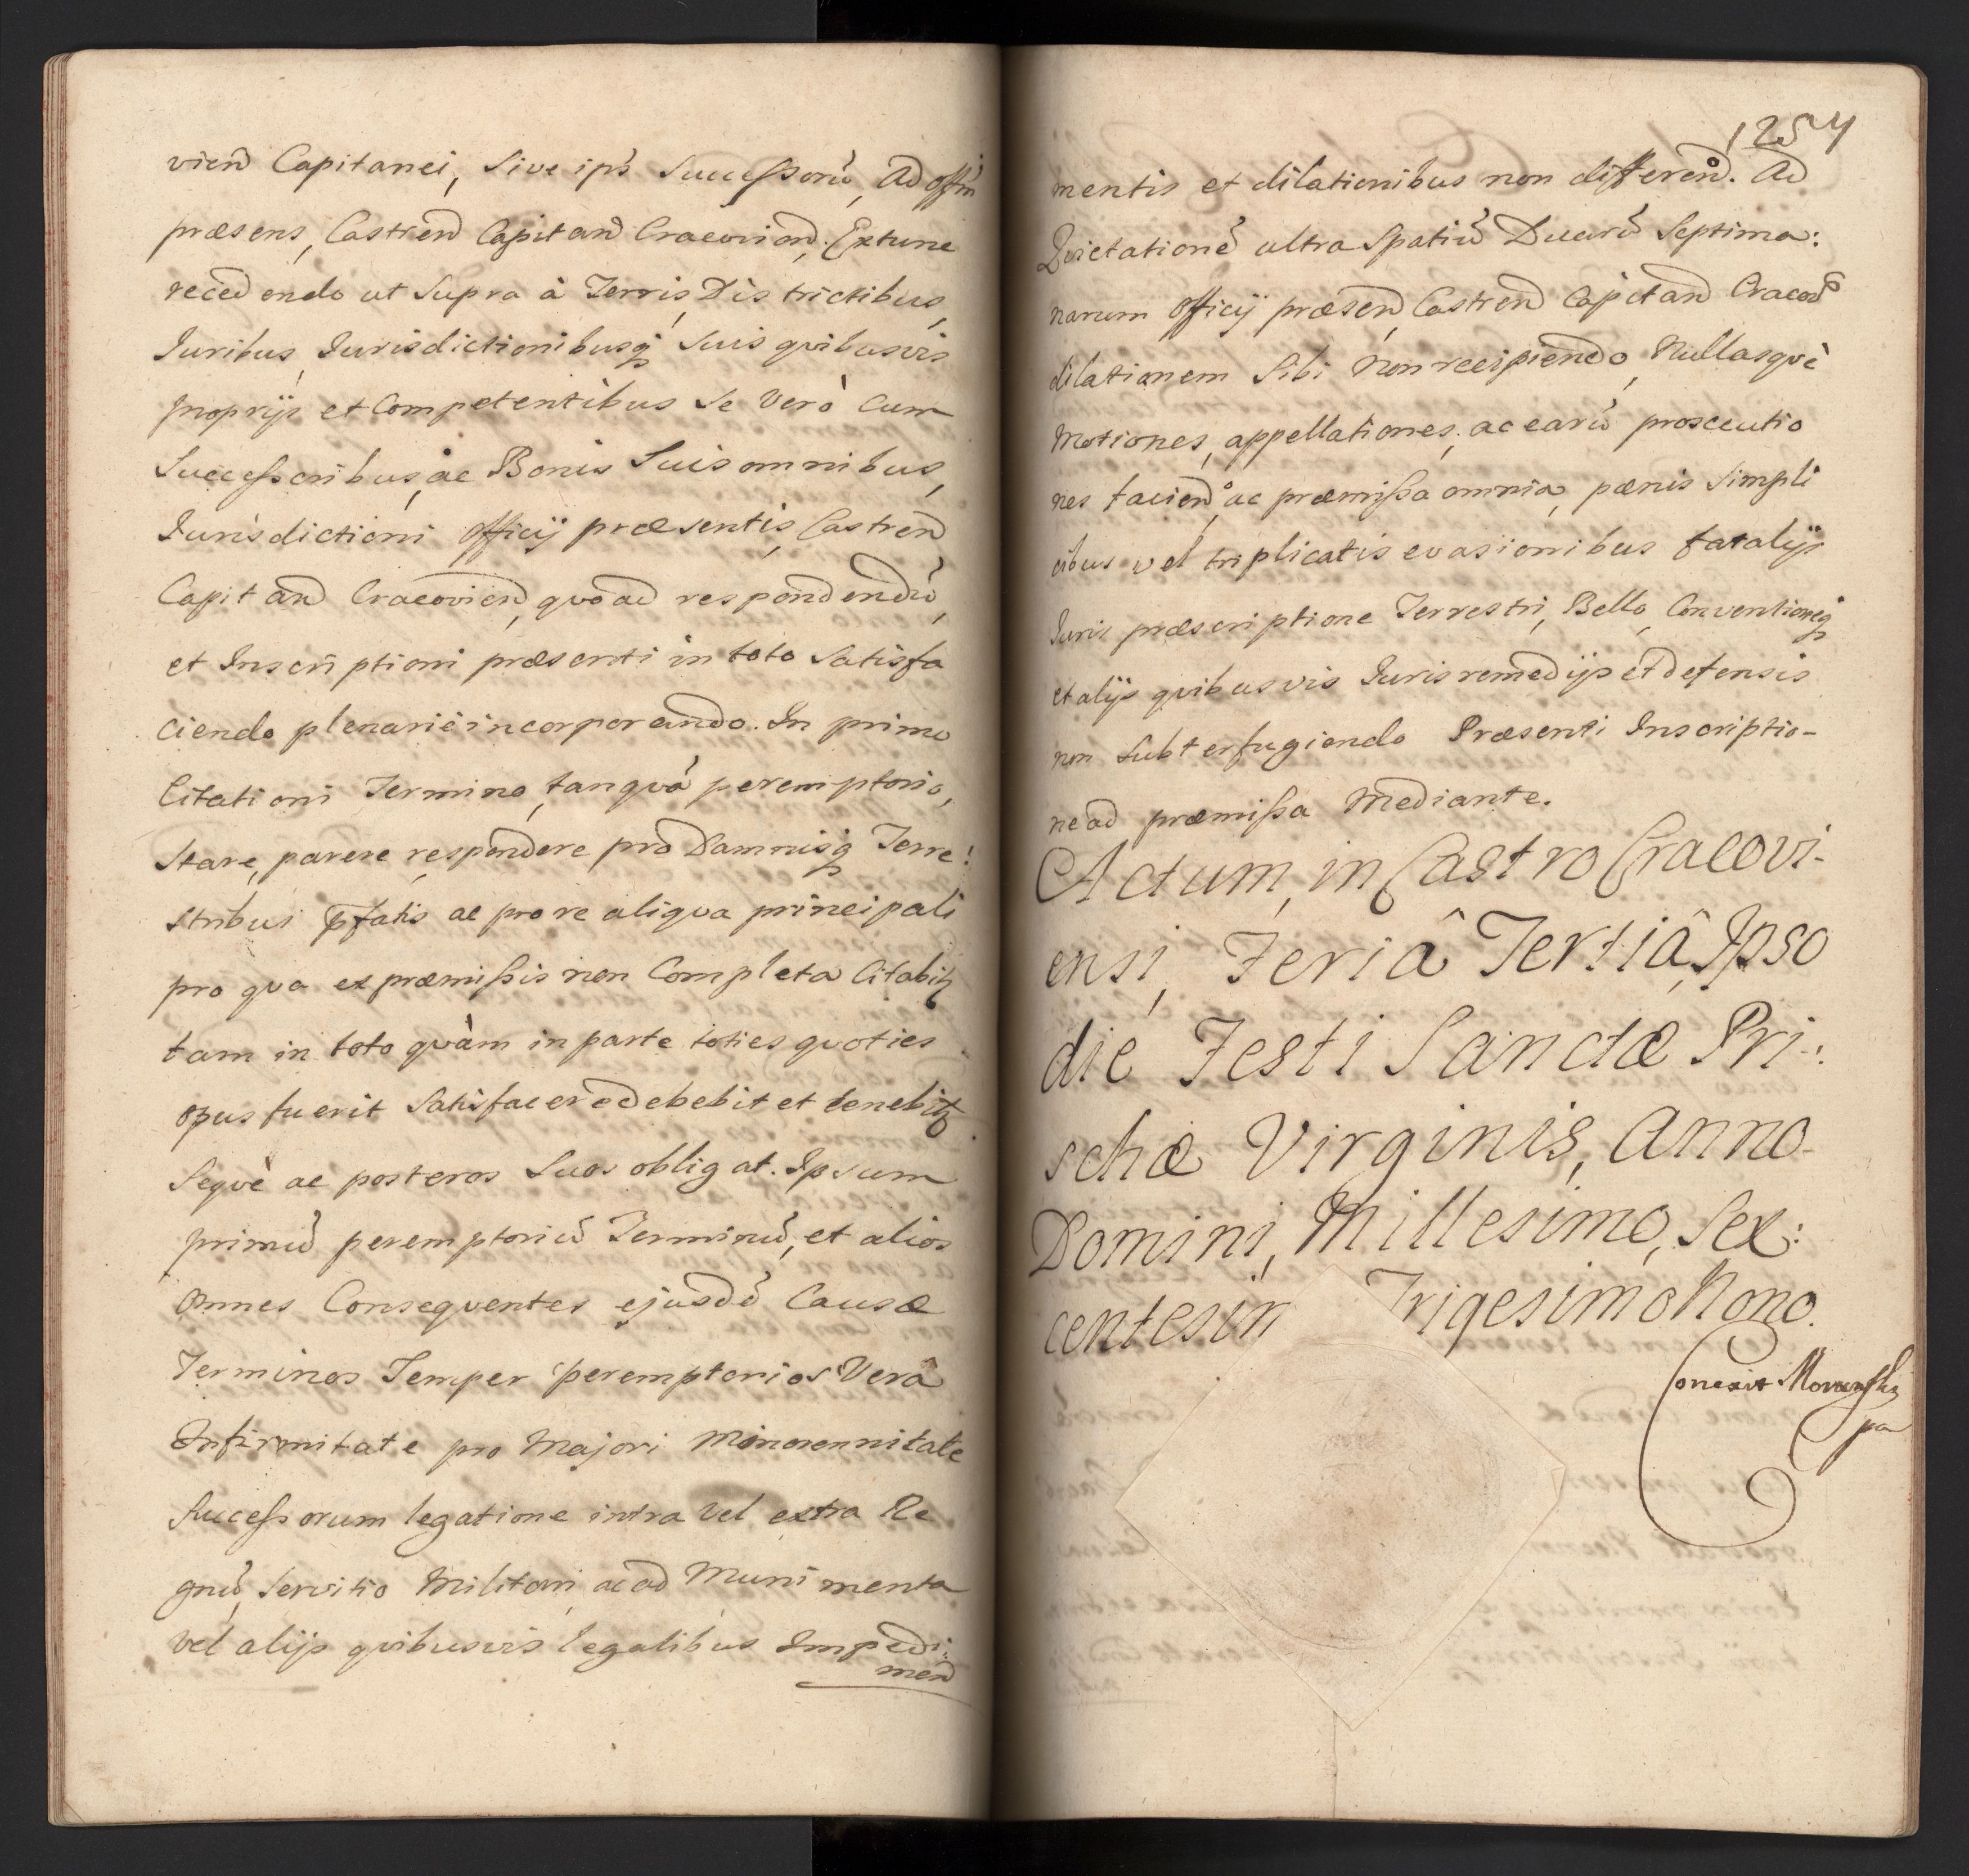 vien̄ Capitanei, Sive ips̄ Successorū, Ad offīm
præsens, Castren̄ Capitan̄ Cracovien̄, Extunc
recedendo ut Supra à Terris, Districtibus,
Iuribus, Iurisdictionibusq̨ Suis qvibusvis
proprijs et Competentibus Se Verò Cum
Successoribus, ac Bonis Suis omnibus,
Iurisdictioni officij præsentis, Castren̄
Capitan̄ Cracovien̄, qvoad respondendū,
et Inscriptioni præsenti in toto Satisfa
ciendo plenariè incorporando. In primo
Citationi Termino, tanqvā peremptorio,
Stare, parere, respondere pro Damnisq̨ Terre:
stribus p̄fatis ac pro re aliqva principali
pro qva ex præmissis non Completa Citabitꝛ
tam in toto qvàm in parte toties qvoties
opus fuerit Satisfacere debebit et tenebitꝛ
Seqvè ac posteros Suos obligat. Ipsum
primū peremptoriū Terminū, et alios
omnes Conseqventes ejusdē Causæ
Terminos Semper peremptorios Verâ
Infirmitate pro Majori Minorennitate
Successorum legatione intra vel extra Re
gnū, Servitio Militari, ac ad Munimenta
vel alijs qvibusvis legalibus Impedi:
men̄
1254
mentis et dilationibus non differen̄do. Ad
Qvietationē ultra Spatiū Duarū Septima:
narum officij præsen̄, Castren̄ Capitan̄ Cracov̄
dilationem Sibi Non recipiendo, Nullasqvè
Motiones, appellationes, ac earū prosecutio
nes facien̄do, ac præmissa omnia, pænis Simpli
cibus vel triplicatis evasionibus fatalijs
Iuris præscriptione Terrestri, Bello, Conventioneq̨
et alijs qvibusvis Iuris remedijs et defensis
non Subterfugiendo Præsenti Inscriptio-
ne ad præmissa Mediante.
Actum, in Castro Cracovi-
ensi, Feriâ Tertiâ, Ipso
die Festi Sanctæ Pri-:
schæ Virginis, Anno
Domini, Millesimo, Sex:
centesim Trigesimo Nono.